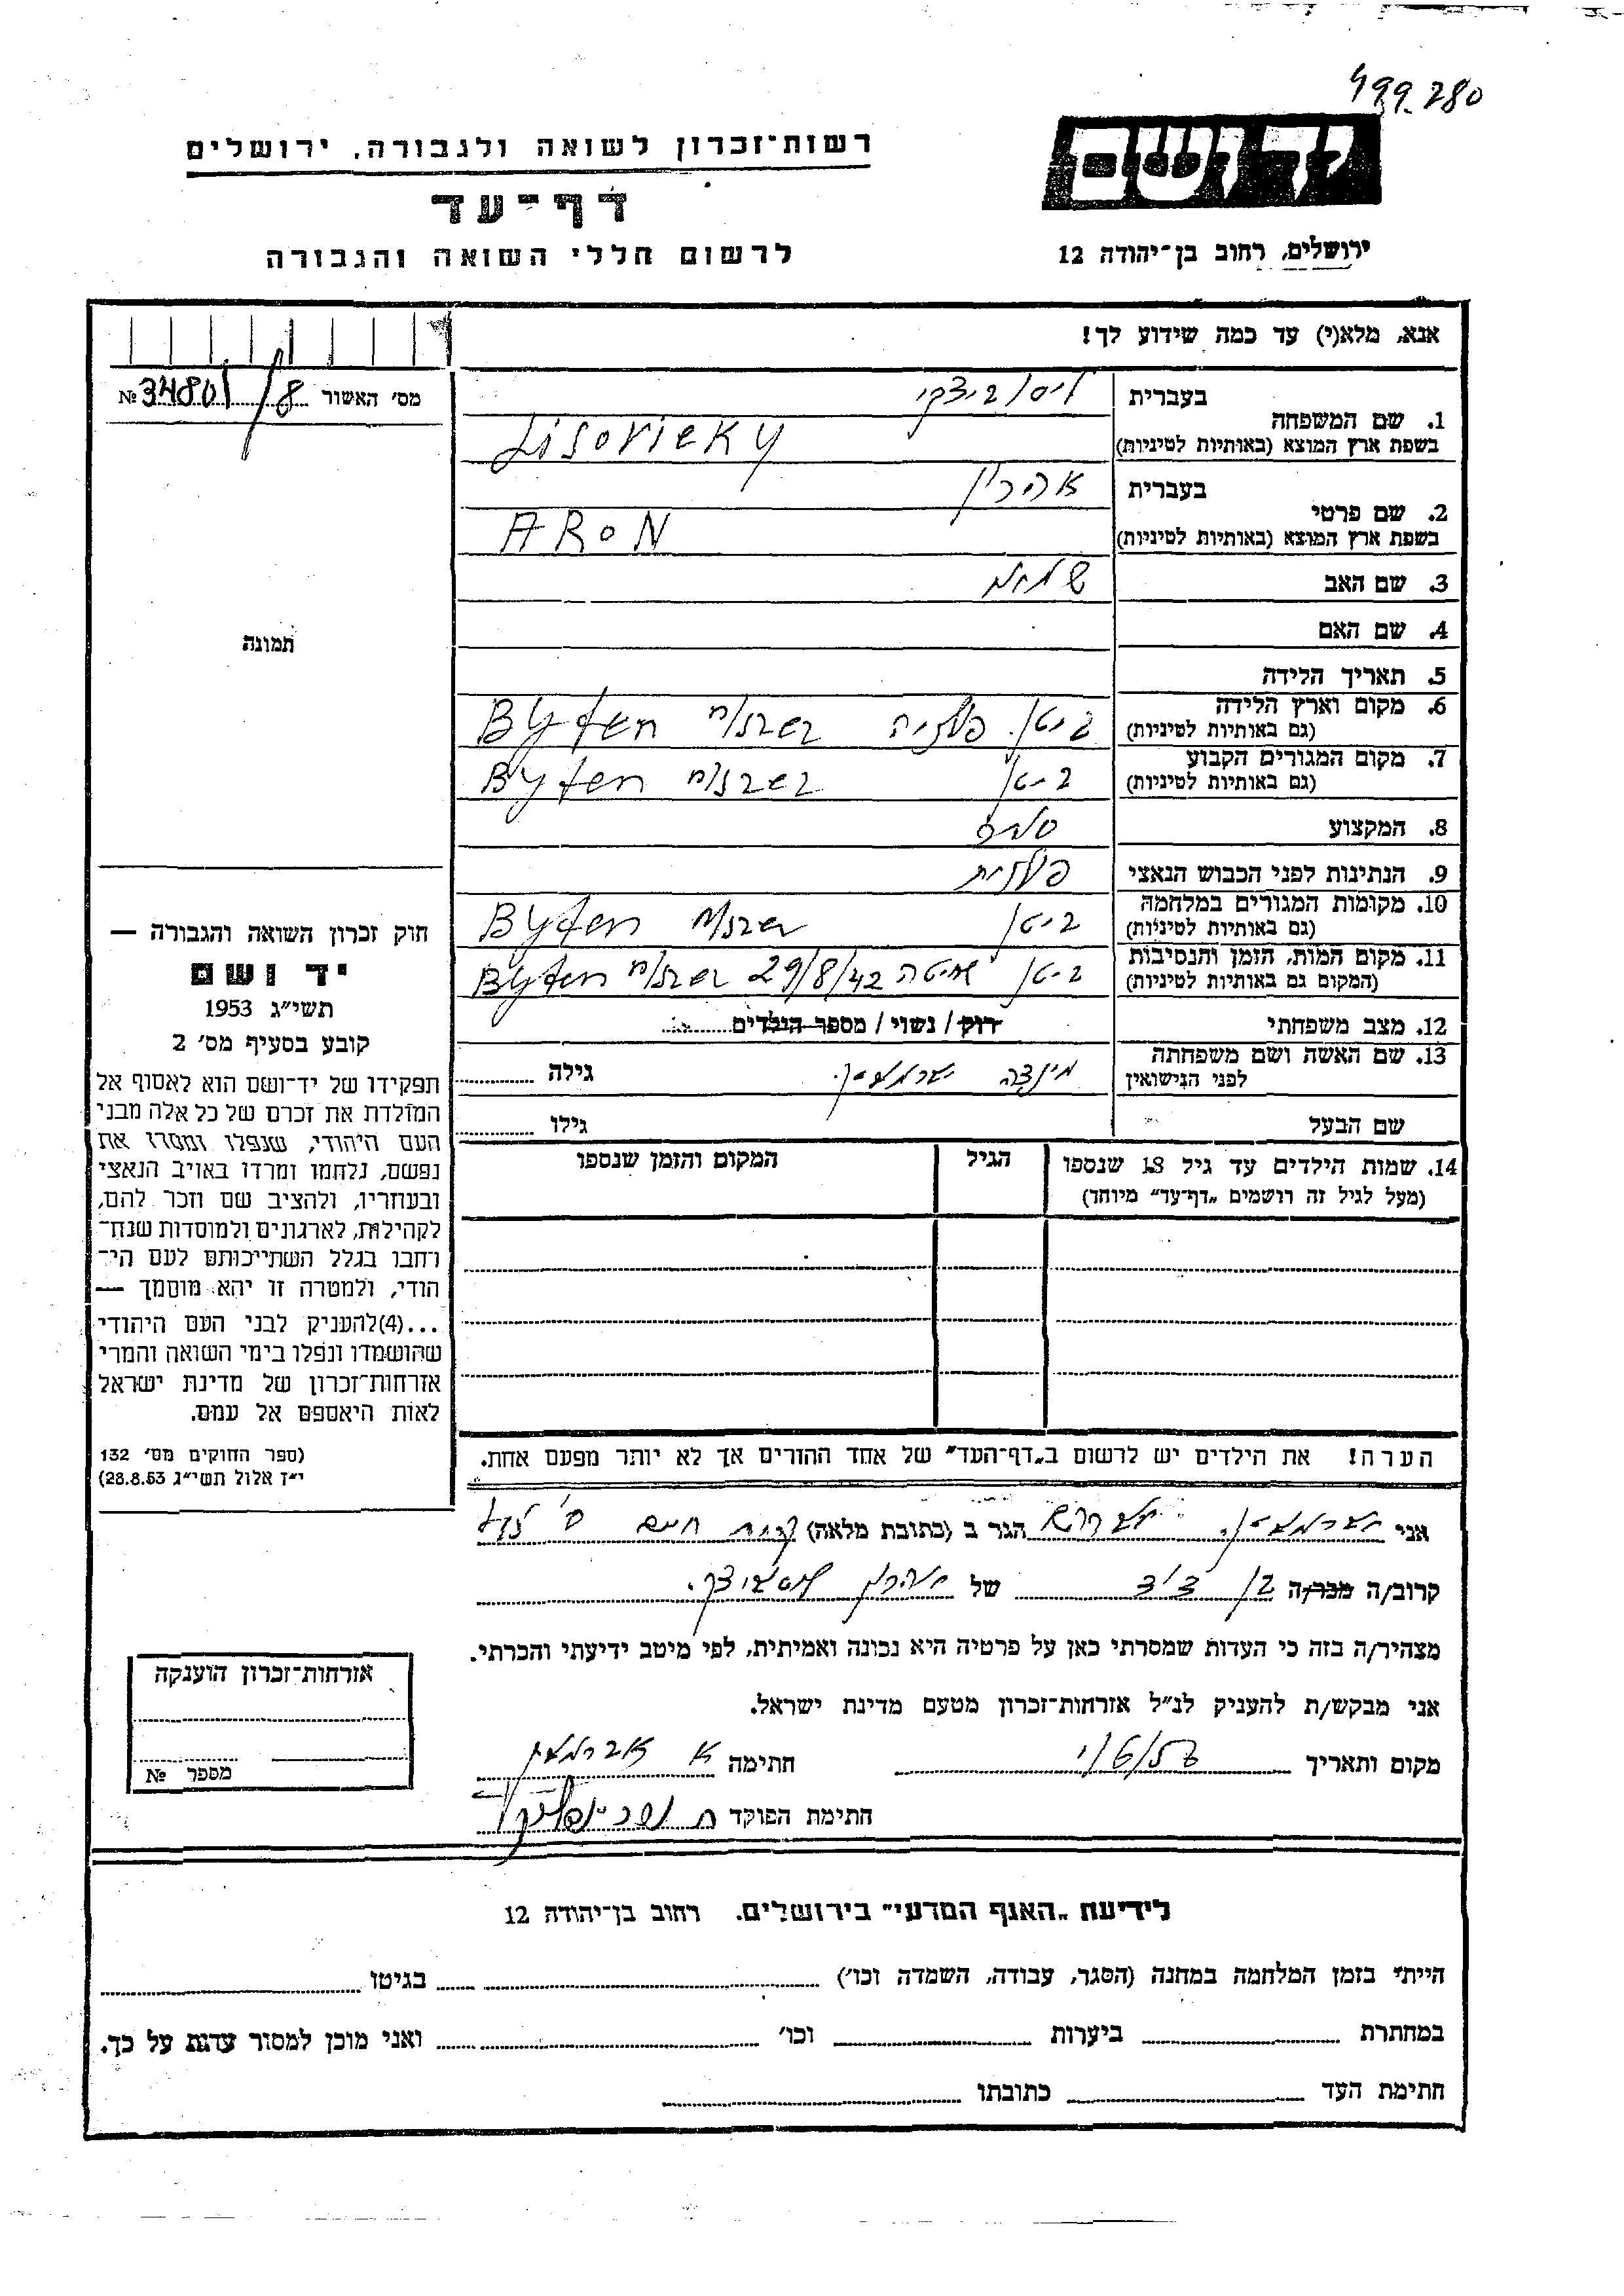 499.280
יד ושם
רשות־זכרון לשואה ולגבורה, ירושלים
דף־עד
לרשום חללי השואה והגבורה
ירושלים, רחוב בן־יהודה 12
אנא, מלא(י) עד כמה שידוע לך!
מס׳ האשור 8/34801 №
תמונה
1. שם המשפחה
בעברית ליסוביצקי
בשפת ארץ המוצא (באותיות לטיניות) Lisovicky
2. שם פרטי
בעברית אהרון
בשפת ארץ המוצא (באותיות לטיניות) ARON
3. שם האב
4. שם האם
5. תאריך הלידה
6. מקום וארץ הלידה
(גם באותיות לטיניות) ביטן. פולניה Byten n/szczr
7. מקום המגורים הקבוע
(גם באותיות לטיניות) ביטן Byten
8. המקצוע
9. הנתינות לפני הכבוש הנאצי פולנית
10. מקומות המגורים במלחמה
(גם באותיות לטיניות) ביטן Byten
11. מקום המות, הזמן והנסיבות
(המקום גם באותיות לטיניות) ביטן 29/8/42 Byten
12. מצב משפחתי רוק / נשוי / מספר הילדים
13. שם האשה ושם משפחתה
לפני הנישואין גילה
שם הבעל גילו
14. שמות הילדים עד גיל 18 שנספו הגיל המקום והזמן שנספו
(מעל לגיל זה רושמים „דף־עד״ מיוחד)
הערה! את הילדים יש לרשום ב„דף־העד״ של אחד ההורים אך לא יותר מפעם אחת.
חוק זכרון השואה והגבורה —
יד ושם
תשי״ג 1953
קובע בסעיף מס׳ 2
תפקידו של יד־ושם הוא לאסוף אל
המולדת את זכרם של כל אלה מבני
העם היהודי, שנפלו ומסרו את
נפשם, נלחמו ומרדו באויב הנאצי
ובעוזריו, ולהציב שם וזכר להם,
לקהילות, לארגונים ולמוסדות שנח־
רחבו בגלל השתייכותם לעם הי־
הודי, ולמטרה זו יהא מוסמך —
...(4)להעניק לבני העם היהודי
שהושמדו ונפלו בימי השואה והמרי
אזרחות־זכרון של מדינת ישראל
לאות היאספם אל עמם.
(ספר החוקים מס׳ 132
י״ז אלול תשי״ג 28.8.53)
אני הגר ב (כתובת מלאה)
קרוב/ה מכר/ה בן דוד של אהרן
מצהיר/ה בזה כי העדות שמסרתי כאן על פרטיה היא נכונה ואמיתית, לפי מיטב ידיעתי והכרתי.
אני מבקש/ת להעניק לנ״ל אזרחות־זכרון מטעם מדינת ישראל.
מקום ותאריך חתימה
חתימת הפוקד
אזרחות־זכרון הוענקה
מספר №
לידיעת „האגף המדעי״ בירושלים. רחוב בן־יהודה 12
הייתי בזמן המלחמה במחנה (הסגר, עבודה, השמדה וכו׳) בגיטו
במחתרת ביערות וכו׳ ואני מוכן למסור עדות על כך.
חתימת העד כתובתו